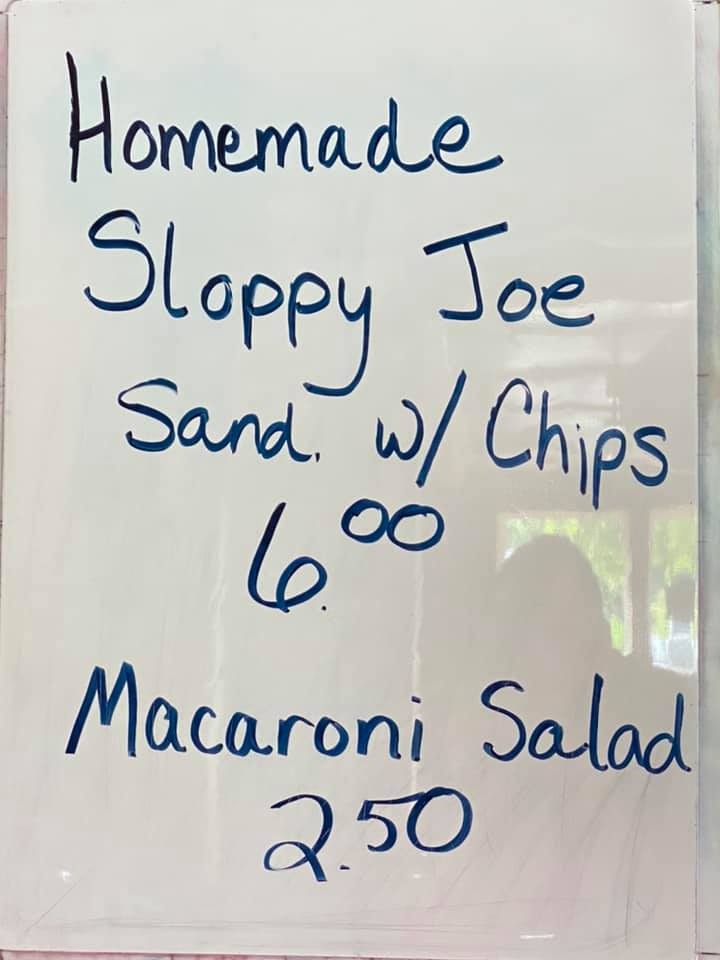 Homemade
Sloppy Joe
Sand. w/ Chips
6.00
Macaroni Salad
2.50